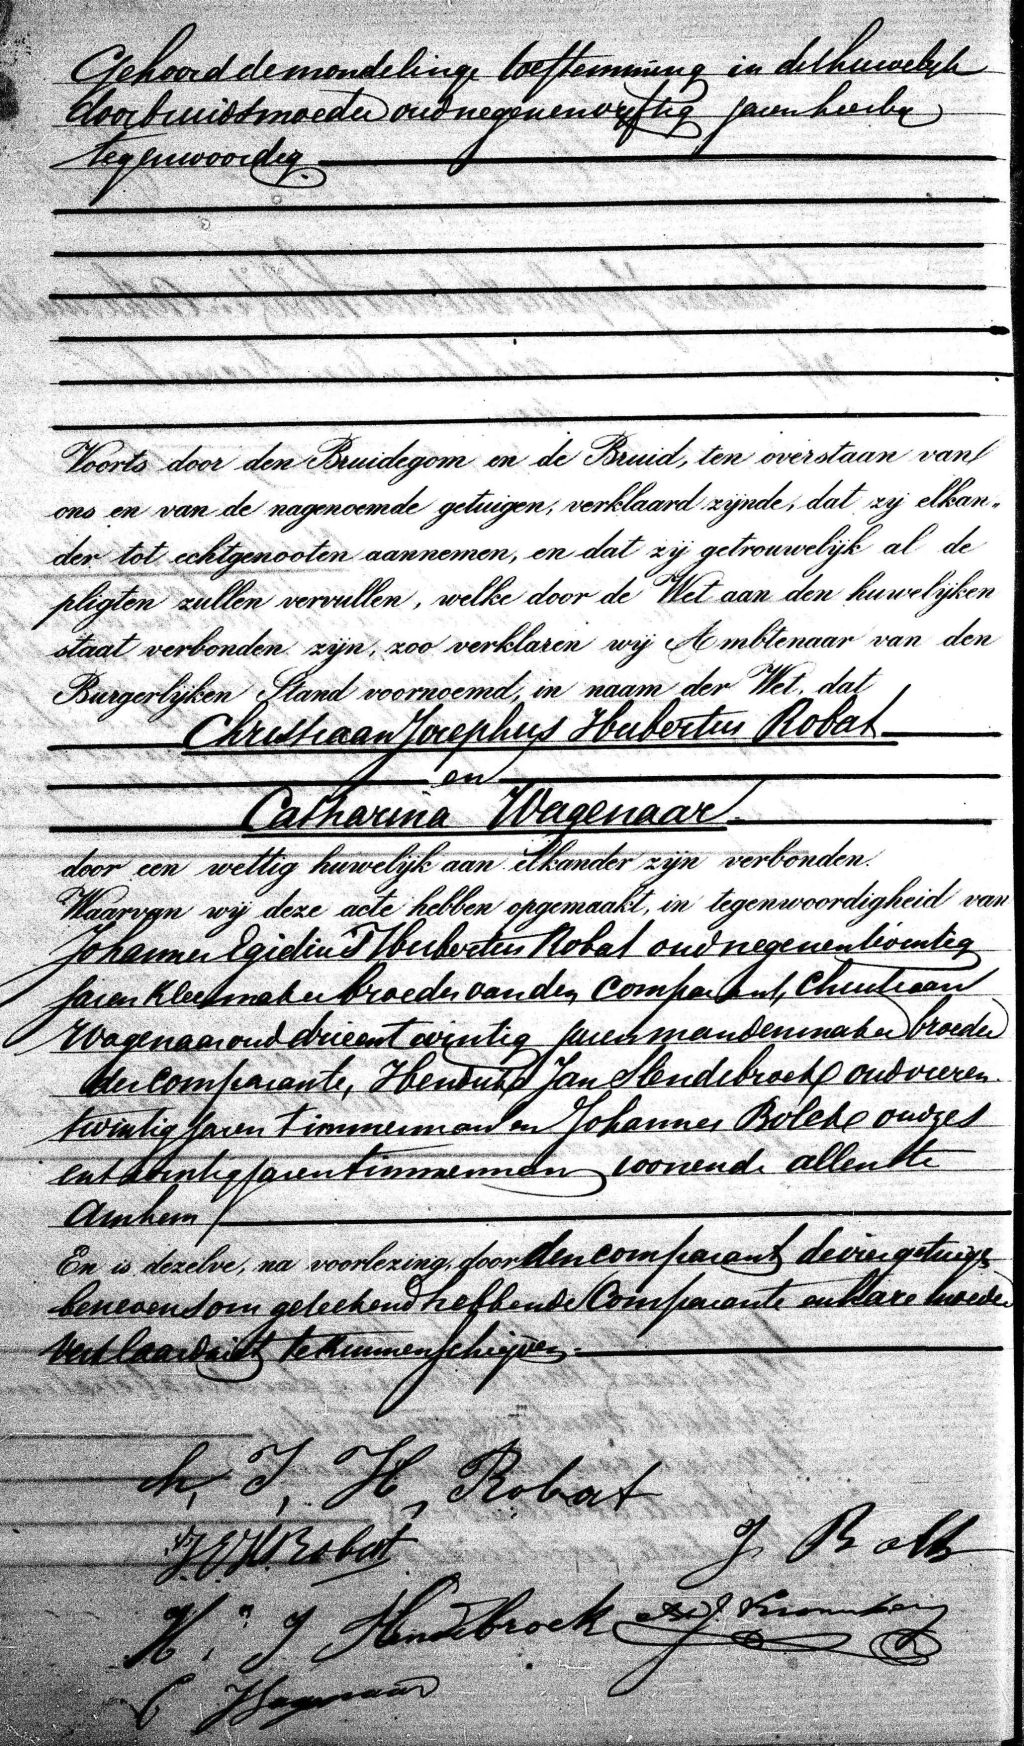 Gehoord de mondelinge toestemming in dit huwelijk
door bruidsmoeder oud negenenvyftig jaren hierby
tegenwoordig
Voorts door den Bruidegom en de Bruid, ten overstaan van
ons en van de nagenoemde getuigen, verklaard zijnde, dat zij elkan-
der tot echtgenooten aannemen, en dat zij getrouwelijk al de
pligten zullen vervullen, welke door de Wet aan den huwelijken
staat verbonden zijn, zoo verklaren wij Ambtenaar van den
Burgerlijken Stand voornoemd, in naam der Wet, dat
Christiaan Josephus Hubertus Robat
en
Catharina Wagenaar
door een wettig huwelijk aan elkander zijn verbonden.
Waarvan wij deze acte hebben opgemaakt, in tegenwoordigheid van
Johannes Egidius Hubertus Robat oud negenentwintig
jaren kleermaker broeder van den comparant, Christiaan
Wagenaar oud drieentwintig jaren mandenmaker broeder
der comparante, Hendrik Jan Hendebroek oud vieren
twintig jaren timmerman en Johannes oud zes
entwintig jaren timmerman woonende allen te
Arnhem
En is dezelve, na voorlezing, door den comparant de vier getuigen
benevens ons geteekend hebbende Comparante en hare moeder
verklaard niet te kunnen schrijven.
Ch, J, H, Robat
J E H Robat
J. Bolk
H. J. Hendebroek
C Wagenaar